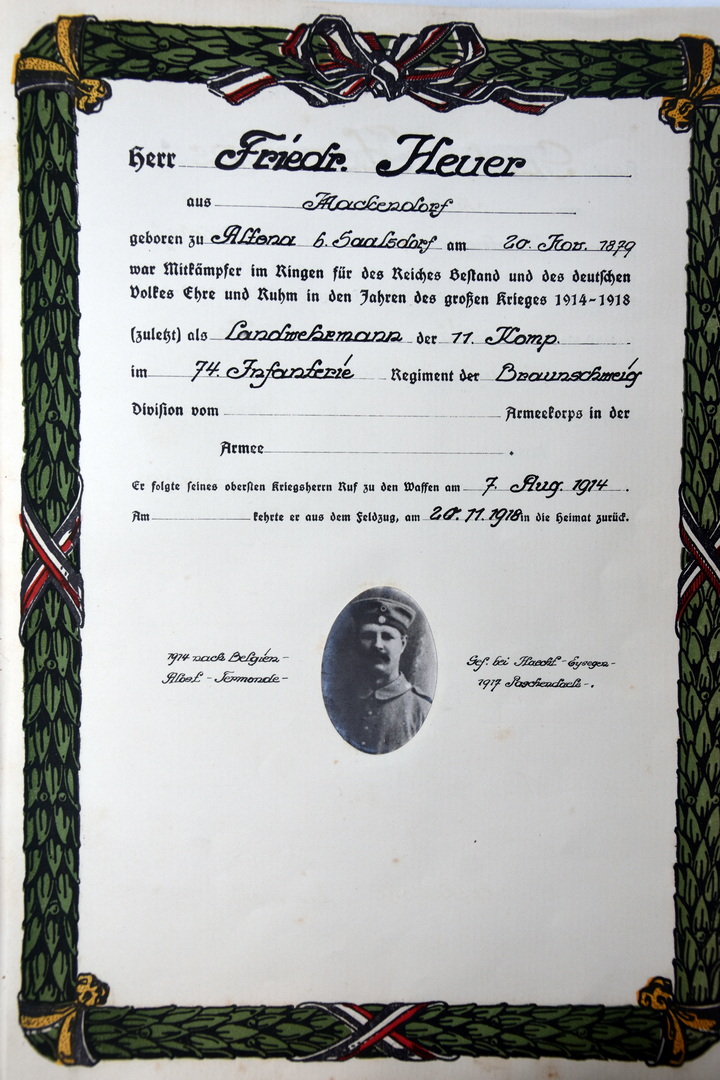 Herr Friedr. Heuer
aus Mackendorf
geboren zu Altona b. Saalsdorf am 20. Nov. 1879
war Mitkämpfer im Ringen für des Reiches Bestand und des deutschen
Volkes Ehre und Ruhm in den Jahren des großen Krieges 1914-1918
(zuletzt) als Landwehrmann der 11. Komp.
im 74. Infanterie Regiment der Braunschweig
Division vom Armeekorps in der
Armee .
Er folgte seines obersten Kriegsherrn Ruf zu den Waffen am 7. Aug. 1914 .
Am kehrte er aus dem Feldzug, am 20. 11. 1918 in die Heimat zurück.
1914 nach Belgien -
Alost - Termonde -
Gef. bei Haecht - Eysegen -
1917 Paschendaele - .